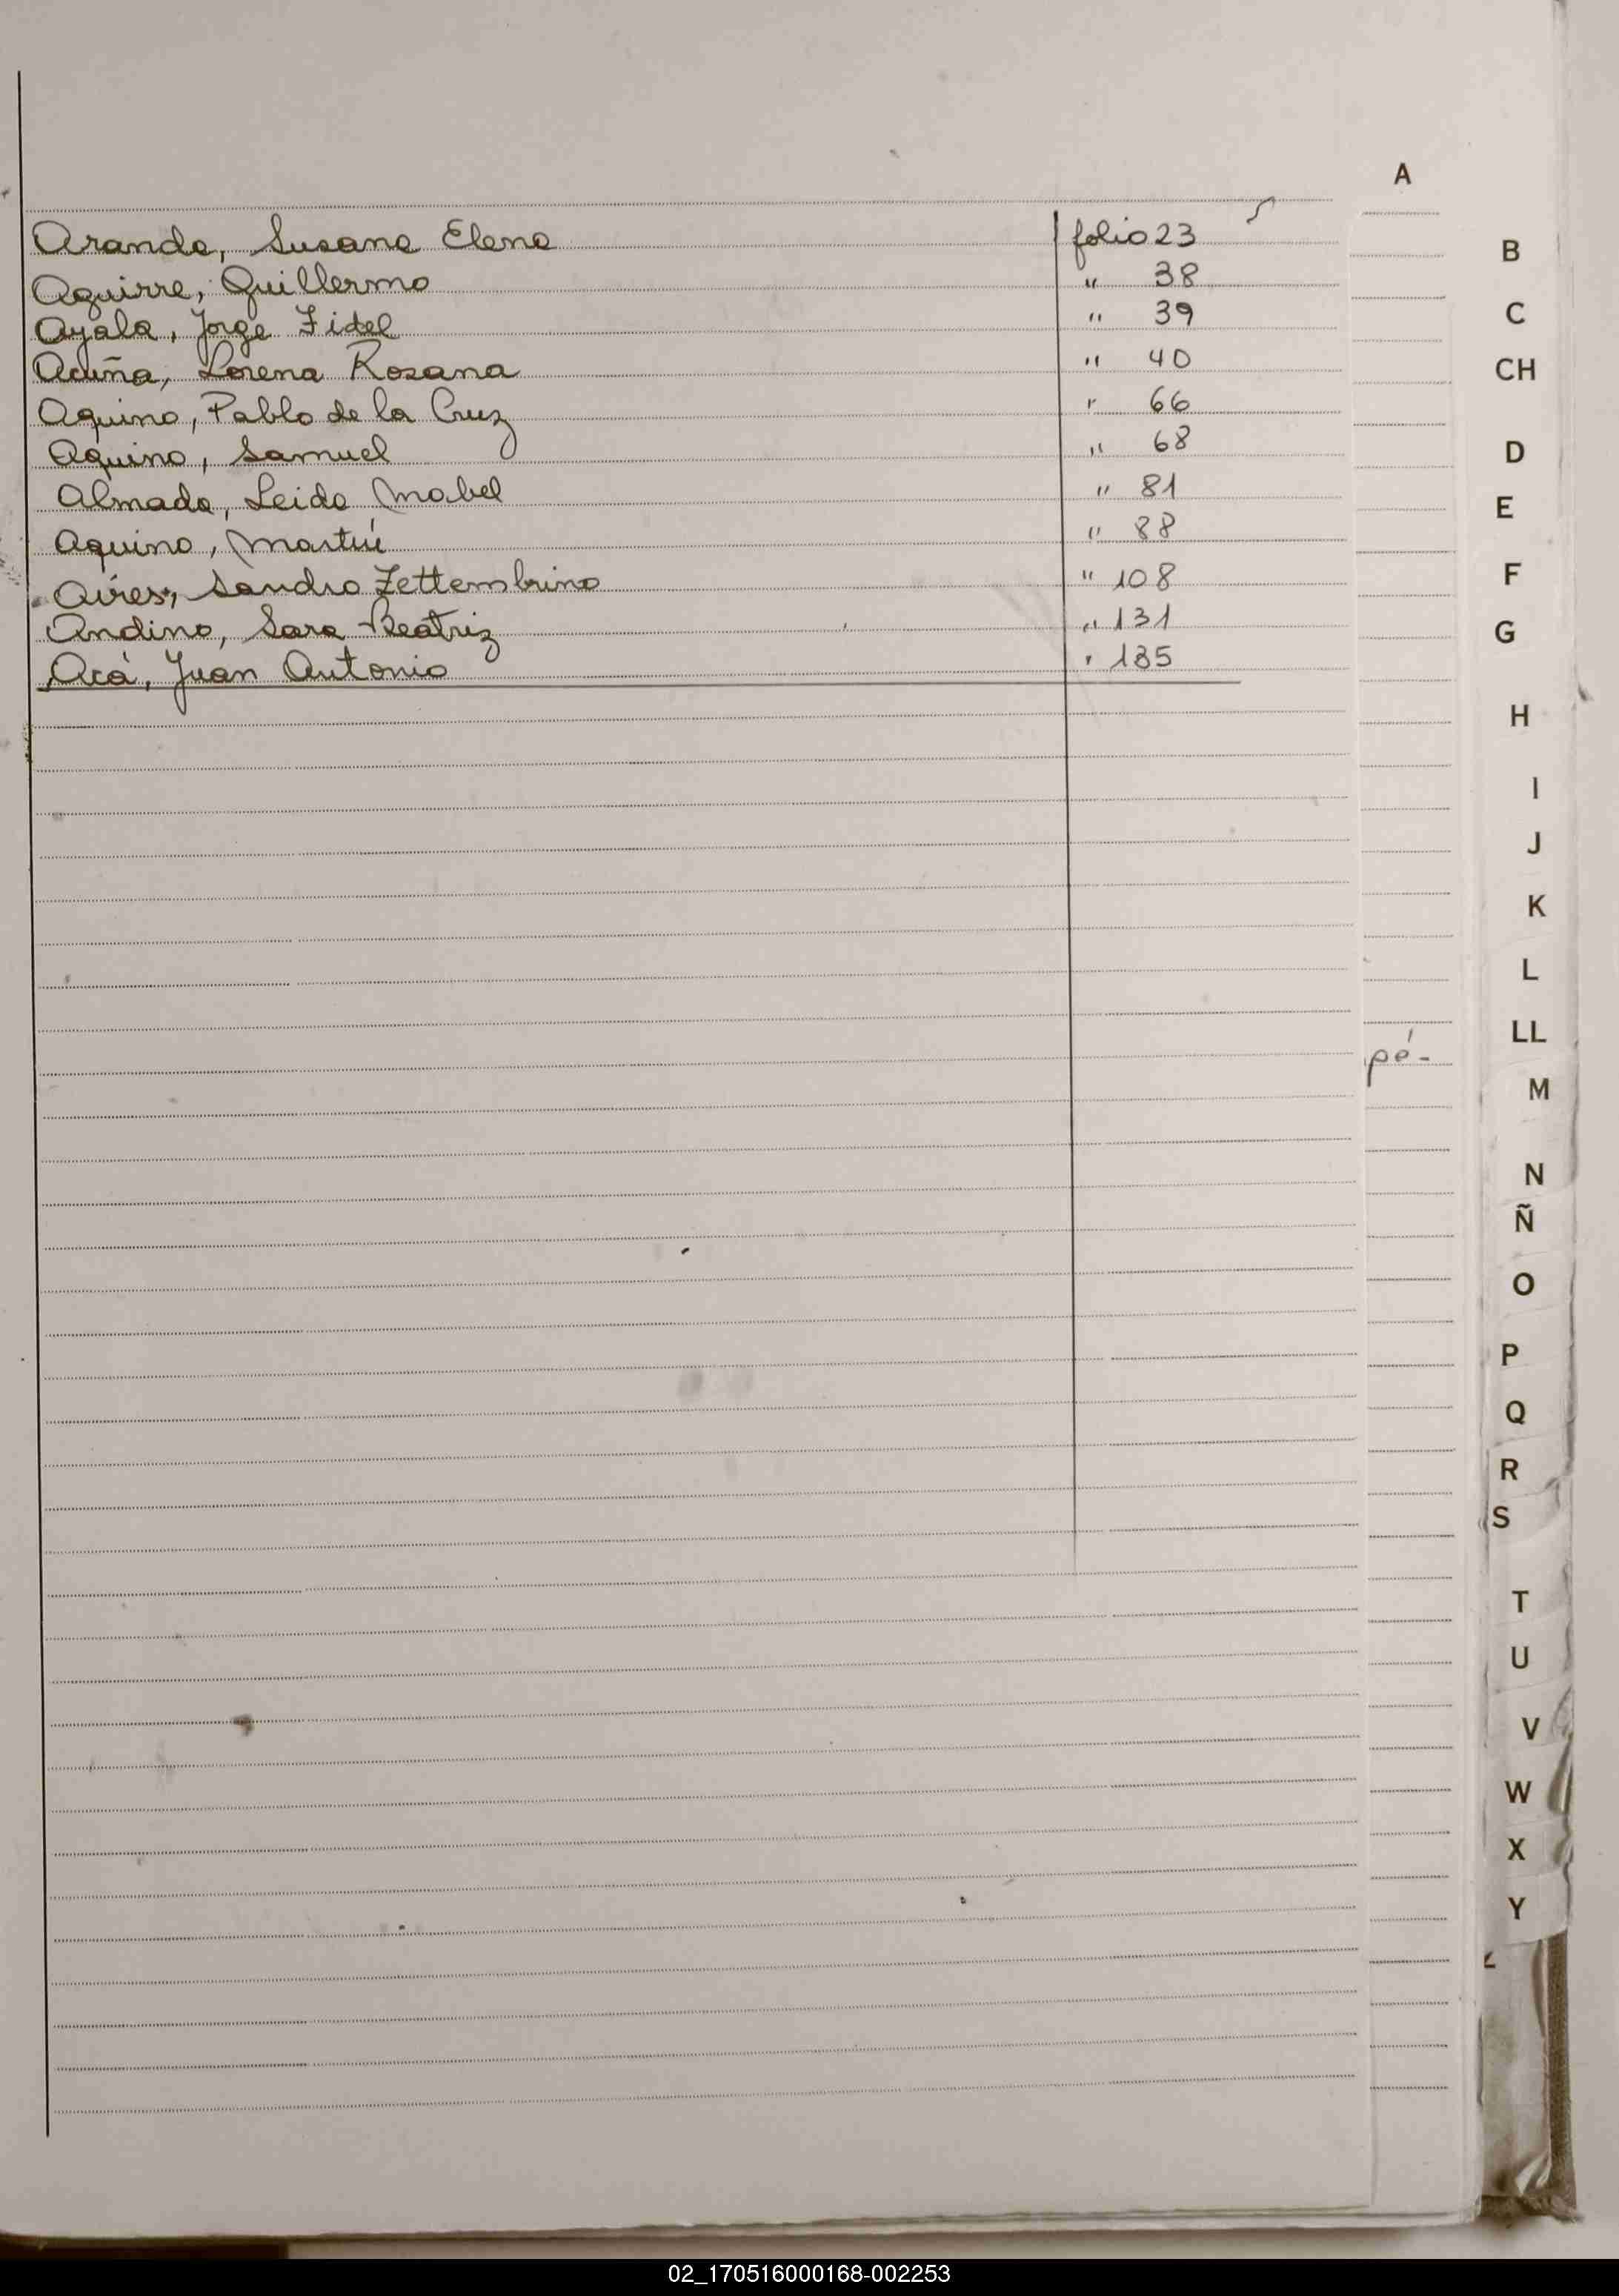 A
Aranda, Susana Elena folio 23
Aguirre, Guillermo " 38
Ayala, Jorge Fidel " 39
Acuña, Lorena Rosana " 40
Aquino, Pablo de la Cruz " 66
Aquino, Samuel " 68
Almada, Leida Mabel " 81
Aquino, Martín " 88
Aires, Sandro Zettembrino " 108
Andino, Sara Beatriz " 131
Acá, Juan Antonio " 135
pé-
B
C
CH
D
E
F
G
H
I
J
K
L
LL
M
N
Ñ
O
P
Q
R
S
T
U
V
W
X
Y
Z
02_170516000168-002253